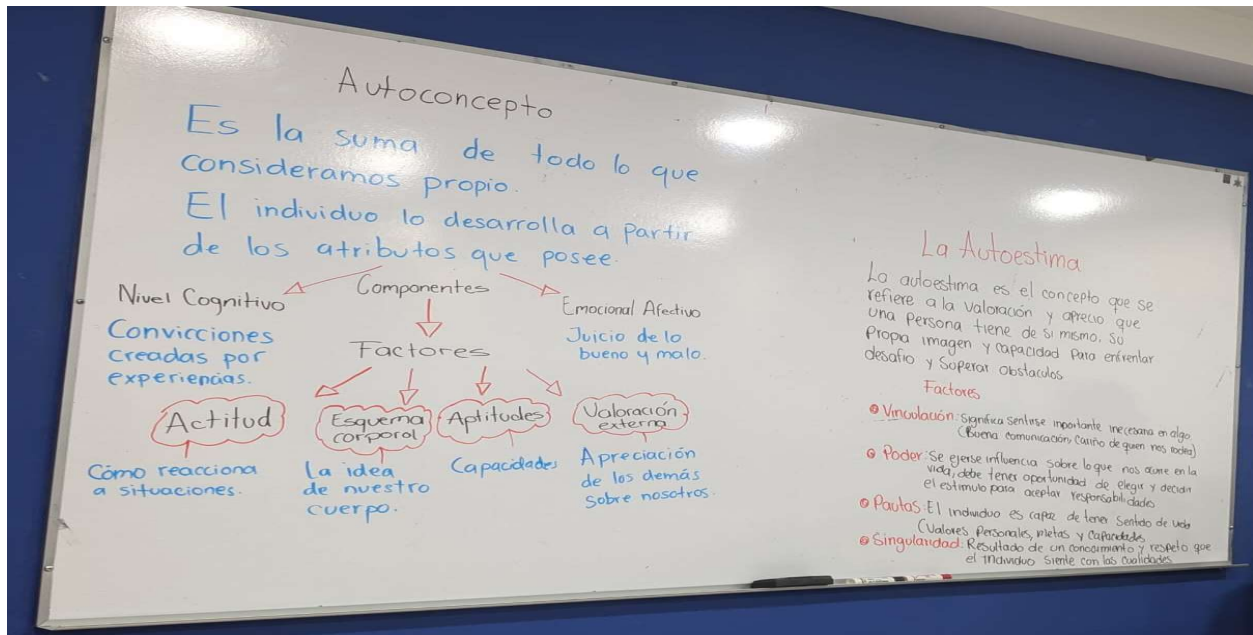 Autoconcepto
Es la suma de todo lo que
consideramos propio.
El individuo lo desarrolla a partir
de los atributos que posee.
Componentes
Nivel Cognitivo
Convicciones
creadas por
experiencias.
Emocional Afectivo
Juicio de lo
bueno y malo.
Factores
Actitud
Cómo reacciona
a situaciones.
Esquema
corporal
La idea
de nuestro
cuerpo.
Aptitudes
Capacidades
Valoración
externa
Apreciación
de los demás
sobre nosotros.
La Autoestima
La autoestima es el concepto que se
refiere a la valoración y aprecio que
una persona tiene de si mismo, su
propia imagen y capacidad para enfrentar
desafio y superar obstaculos
Factores
Vinculación: Significa sentirse importante en algo
(Buena comunicación cariño de quien nos rodea)
Poder: Se ejerse influencia sobre lo que nos ocurre en la
vida, debe tener oportunidad de elegir y decidir
el estimulo para aceptar responsabilidades
Pautas: El individuo es capaz de tener sentido de vida
(Valores personales, metas y capacidades
Singularidad: Resultado de un conocimiento y respeto que
el individuo siente con las cualidades